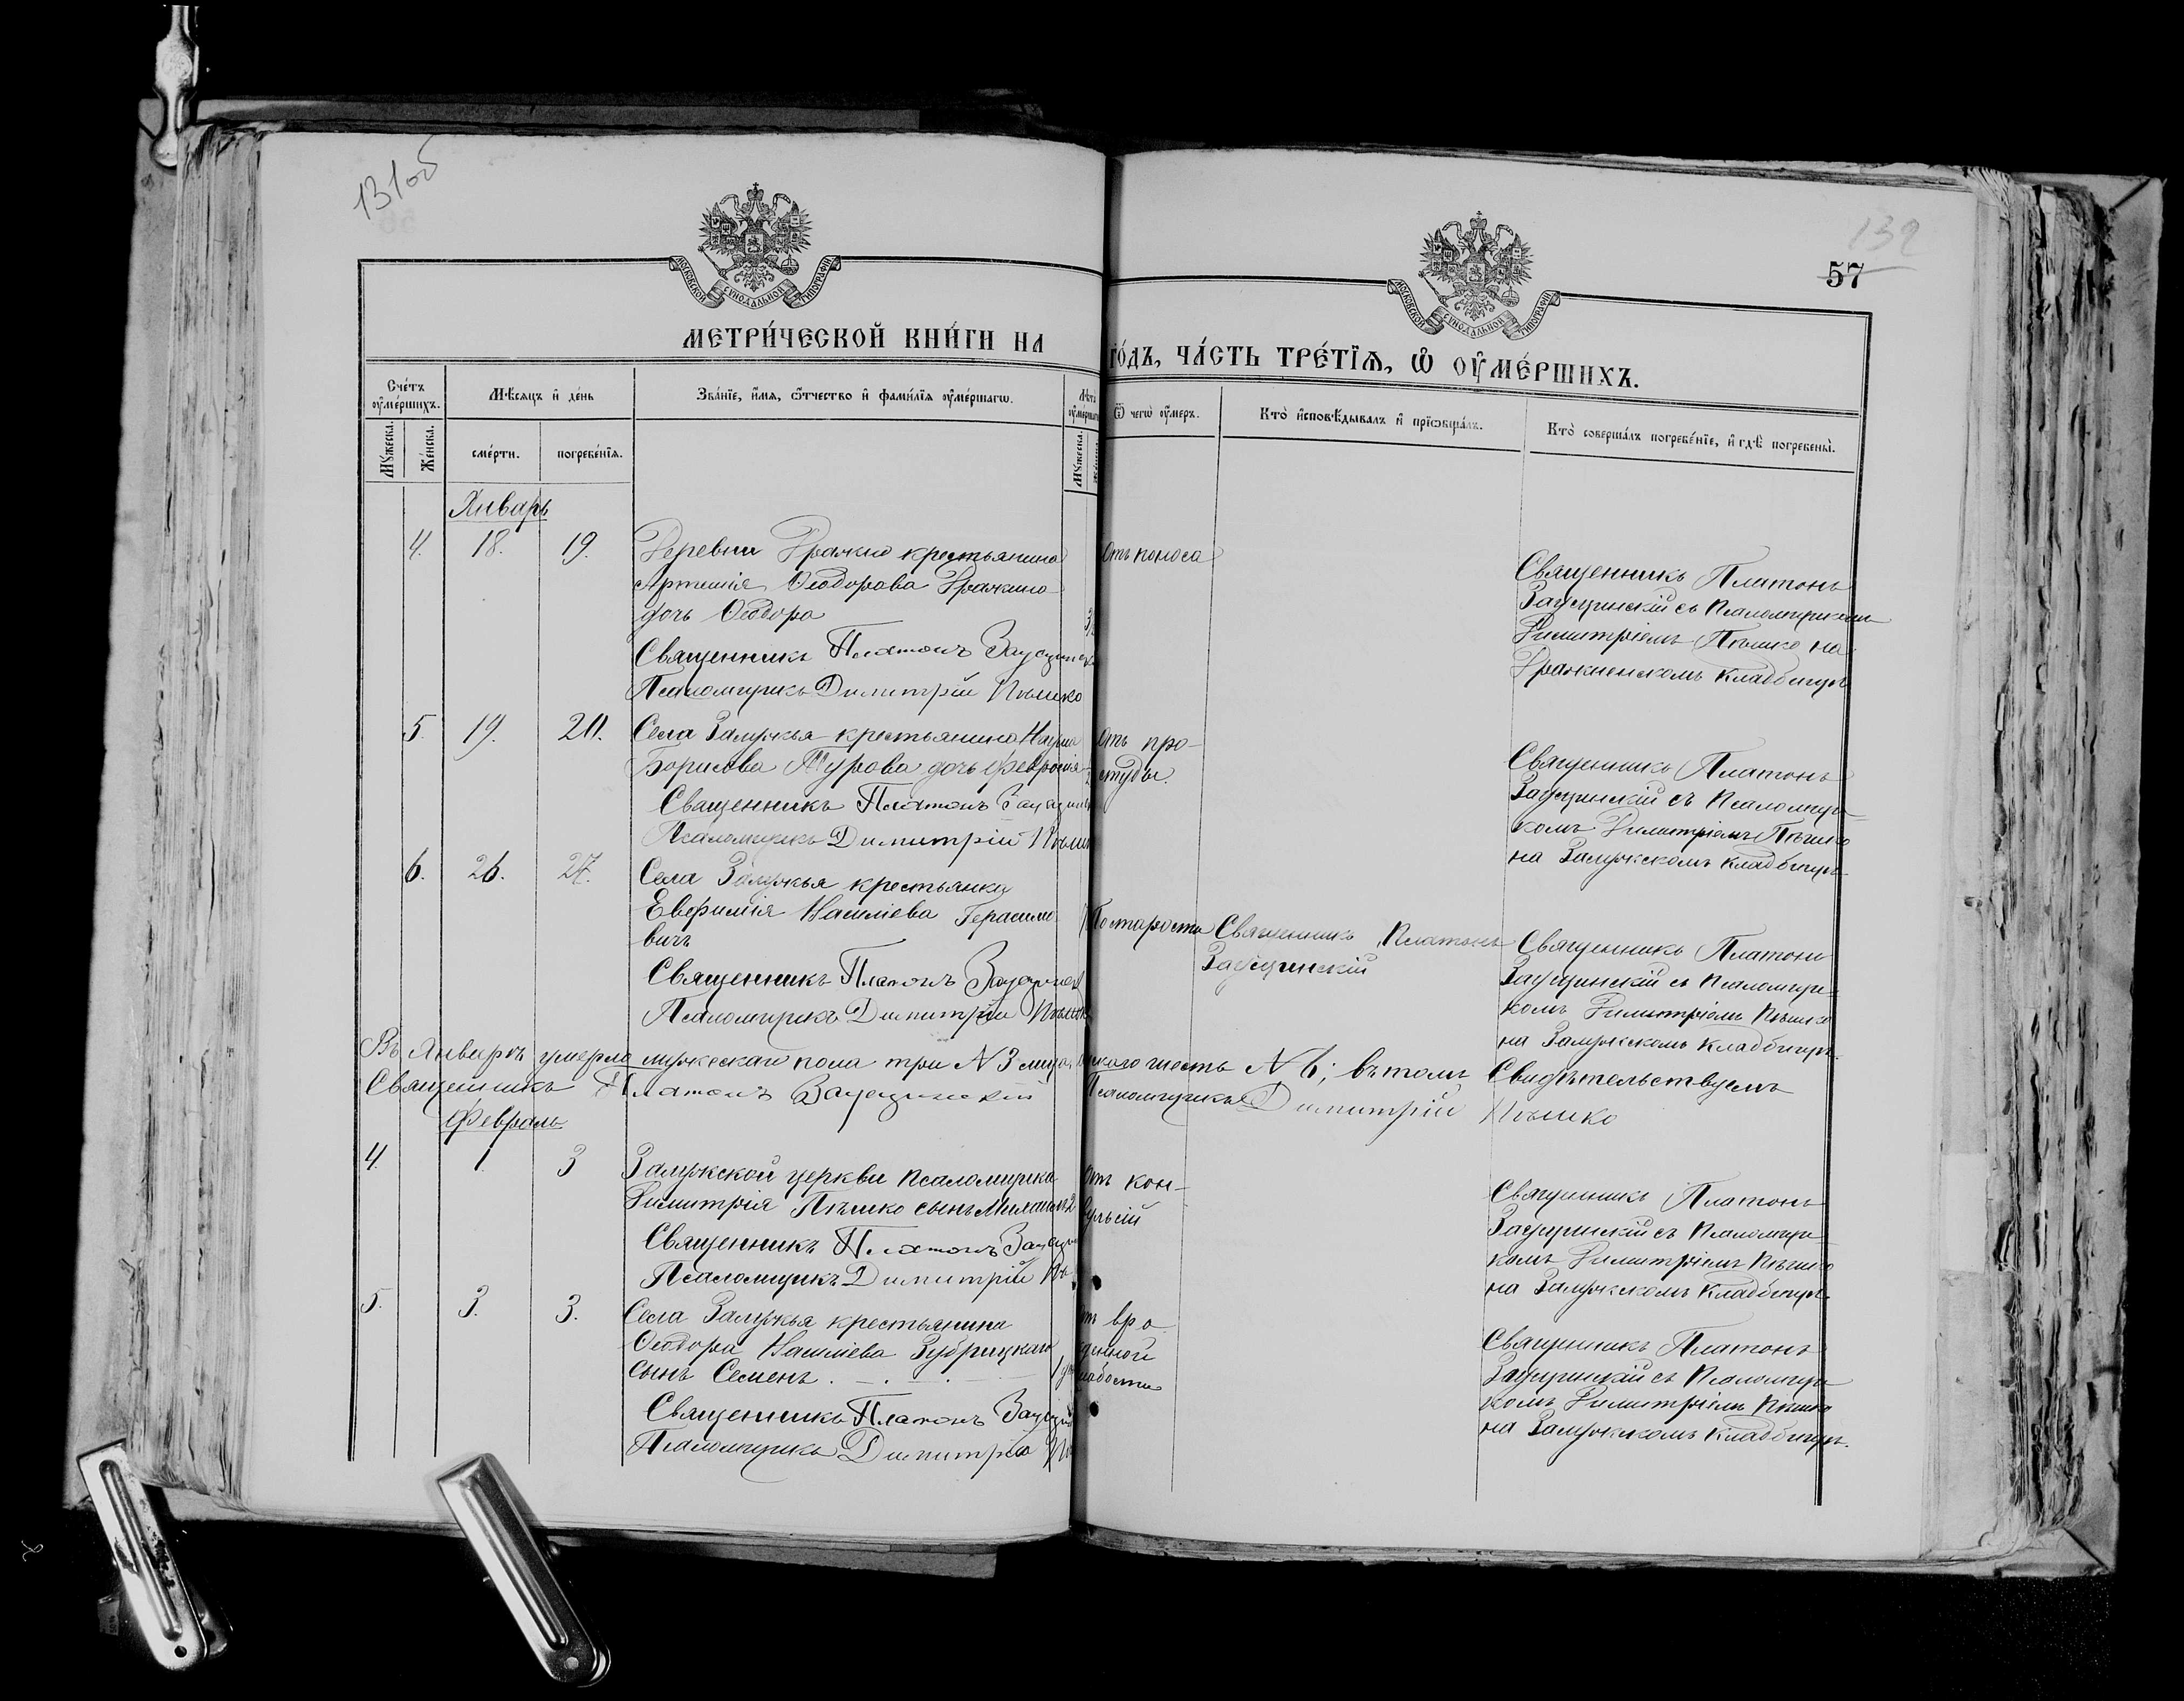 131об
132
57
МОСКОВСКОЙ СѴНОДАЛЬНОЙ ТИПОГРАФІИ
МОСКОВСКОЙ СѴНОДАЛЬНОЙ ТИПОГРАФІИ
МЕТРИ́ЧЕСКОЙ КНИ́ГИ НА
ГО́ДЪ, ЧА́СТЬ ТРЕ́ТЇѦ, Ѡ҆ ОУ҆МЕ́РШИХЪ.
Сче́тъ оу҆ме́ршихъ.
Мѣ́сяцъ и҆ де́нь
Зва́нїе, и҆́мѧ, ѻ҆́тчество и҆ фами́лїѧ оу҆ме́ршагѡ.
Лѣта оу҆мершагѡ
Ѿ чегѡ̀ оу҆́меръ.
Кто̀ и҆сповѣ́дывалъ и҆ прїѡбща́лъ.
Кто̀ соверша́лъ погребе́нїе, и҆ гдѣ̀ погребены̀.
Мꙋ́жеска.
Же́нска.
сме́рти.
погребе́нїѧ.
Мꙋжеска.
Январь
4. 18. 19. Деревни Дражно крестьянина
Артемія Ѳеодорова Дражино
дочь Ѳеодора
Священникъ Платонъ Заусцинск
Псаломщикъ Димитрій Пѣшко
отъ поноса
Священникъ Платонъ
Заусцинскій съ Псаломщикомъ
Димитріемъ Пѣшко на
Дражненскомъ кладбищѣ
5. 19. 20. Села Залужья крестьянина Наума
Борисова Турова дочь Февронія
Священникъ Платонъ Заусцин
Псаломщикъ Димитрій Пѣш
отъ про-
студы.
Священникъ Платонъ
Заусцинскій съ Псаломщи-
комъ Димитріемъ Пѣшко
на Залужскомъ кладбищѣ
6. 26. 27. Села Залужья крестьянка
Евфимія Герасимо
вичъ
Священникъ Платонъ
Псаломщикъ Димитрій Пѣшк
По старости
Священникъ Платонъ
Заусцинскій
Священникъ Платонъ
Заусцинскій съ Псаломщи-
комъ Димитріемъ Пѣшко
на Залужскомъ кладбищѣ.
Въ Январѣ умерло мужескаго пола три № 3 скаго шесть № 6; въ томъ Свидѣтельствуемъ
Священникъ Платонъ Заусцинскій Псаломщикъ Димитрій Пѣшко
Февраль
4. 1. 3 Залужской церкви Псаломщика
Димитрія Пѣшко сынъ Михаилъ 2
Священникъ Платонъ Заусцин
Псаломщикъ Димитрій Пѣ
отъ кон-
вульсій
Священникъ Платонъ
Заусцинскій съ Псаломщи-
комъ Димитріемъ Пѣшко
на Залужскомъ кладбищѣ.
5. 3. 3. Села Залужья крестьянина
Ѳеодора Зубрицкаго
сынъ Семенъ
Священникъ Платонъ Заусцин
Псаломщикъ Димитрій Пѣ
отъ вро
жденной
слабости
Священникъ Платонъ
Заусцинскій съ Псаломщи-
комъ Димитріемъ Пѣшко
на Залужскомъ кладбищѣ.